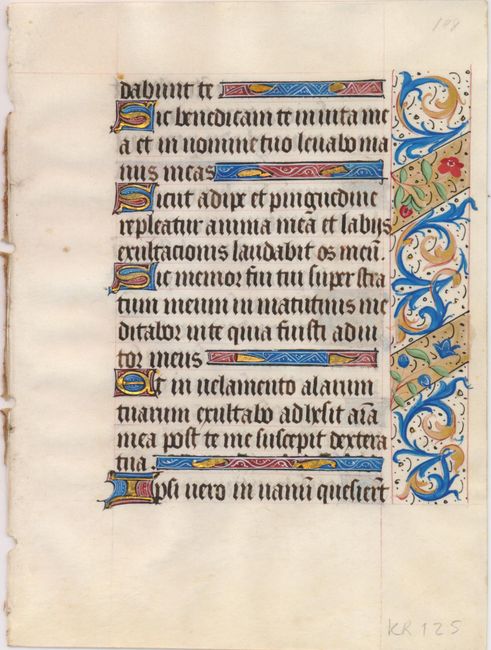 dabunt te
Sic benedicam te in uita me
a et in nomine tuo leuabo ma
nus meas
Sicut adipe et pinguedine
repleatur anima meā et labijs
exultacionis laudabit os meū.
Sic memor fui tui super stra
tum meum in matutinis me
ditabor in te quia fuisti adiu
tor meus
Et in uelamento alarum
tuarum exultabo adhesit aīa
mea post te me suscepit dextera
tua.
Ipsi uero in uanū quesierūt
KR 125